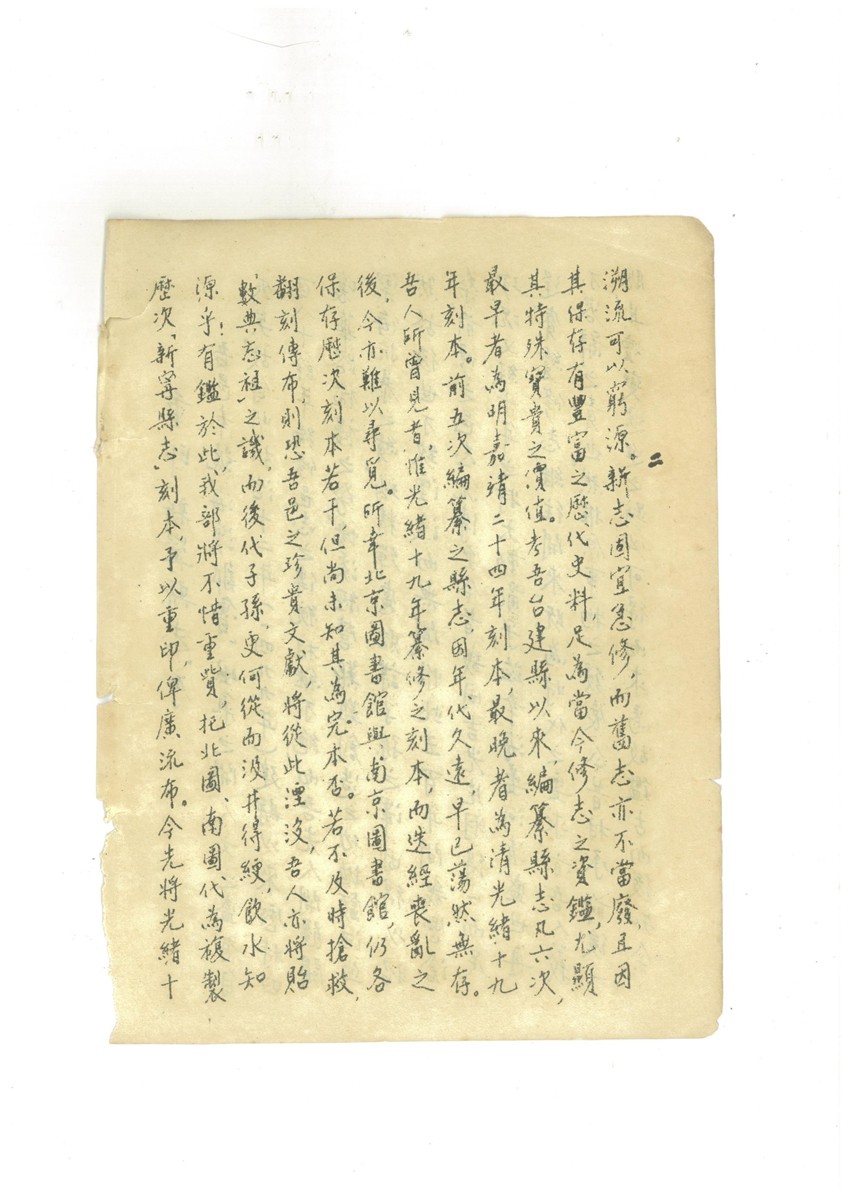 二
溯流可以窮源。新志固宜急修,而舊志亦不當廢,且因
其保存有豐富之歷代史料,足為當今修志之資鑑,尤顯
其特殊寶貴之價值。考吾台建縣以來,編纂縣志凡六次,
最早者為明嘉靖二十四年刻本,最晚者為清光緒十九
年刻本。前五次編纂之縣志,因年代久遠,早已蕩然無存。
吾人所曾見者,惟光緒十九年纂修之刻本,而迭經喪亂之
後,今亦難以尋覓。所幸北京圖書館與南京圖書館,仍各
保存歷次刻本若干,但尚未知其為完本否。若不及時搶救,
翻刻傳布,則恐吾邑之珍貴文獻,將從此湮沒,吾人亦將貽
「數典忘祖」之譏,而後代子孫,更何從而汲井得綆,飲水知
源乎!有鑑於此,我部將不惜重貲,把北圖、南圖代為複製
歷次「新寧縣志」刻本,予以重印,俾廣流布。今先將光緒十